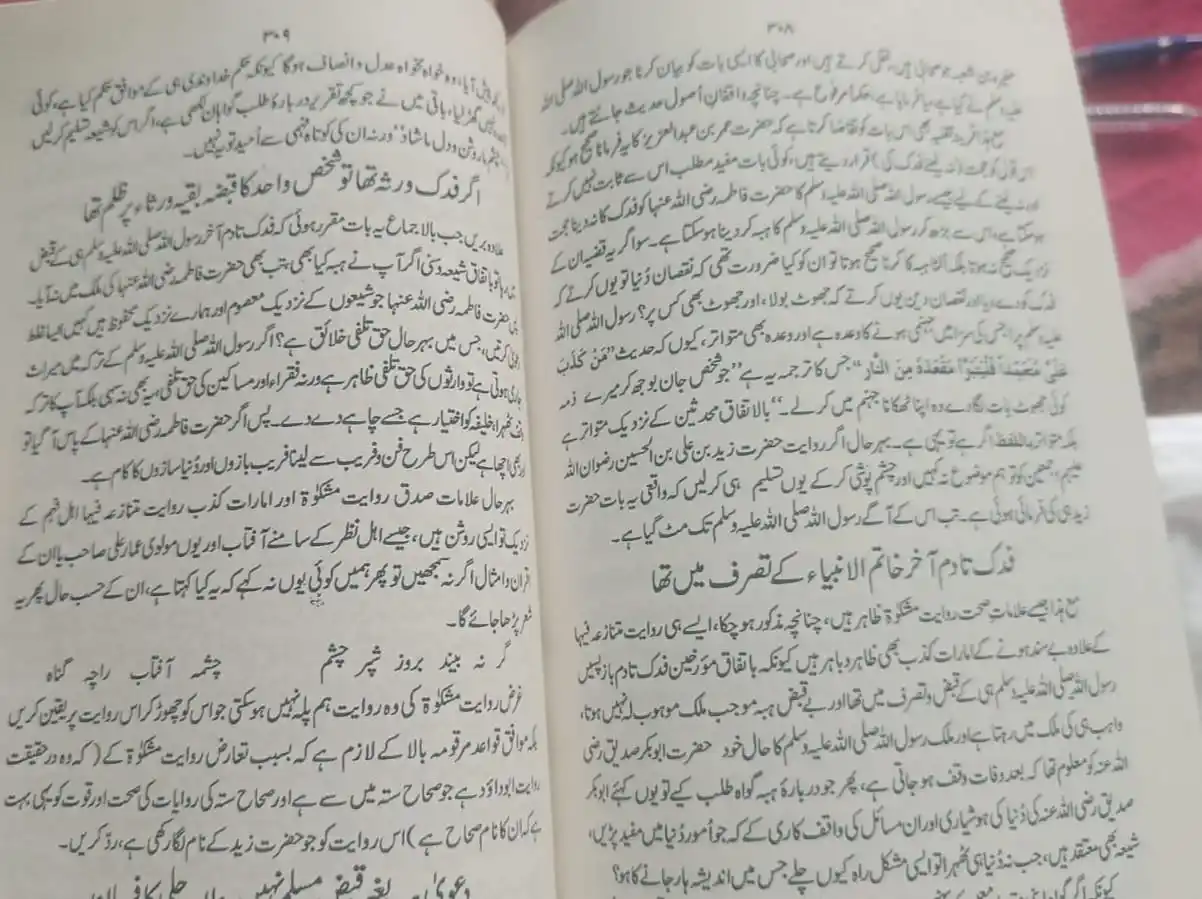 ۳۰۸
مغیرہ بن شعبہ جو صحابی ہیں، نقل کرتے ہیں اور صحابی کا ایسی بات کو بیان کرنا جو رسول اللہ صلی اللہ
علیہ وسلم نے کیا ہے یا فرمایا ہے، حکماً مرفوع ہے۔ چنانچہ واقفانِ اُصول حدیث جانتے ہیں۔
بھی اس بات کو تقاضا کرتا ہے کہ حضرت عمر بن عبدالعزیز کا یہ فرمانا صحیح ہو کیونکہ
اس قول کو حجت (نہ لینے فدک کی) قرار دیتے ہیں، کوئی بات مفید مطلب اس سے ثابت نہیں کرتے
اور نہ لینے کے لیے جیسے رسول اللہ صلی اللہ علیہ وسلم کا حضرت فاطمہ رضی اللہ عنہا کو فدک کا نہ دینا حجت
ہو سکتا ہے، اس سے بڑھ کر رسول اللہ صلی اللہ علیہ وسلم کا ہبہ کر دینا ہو سکتا ہے۔ سو اگر یہ قضیہ ان کے
نزدیک صحیح نہ ہوتا بلکہ اُلٹا ہبہ کا کرنا صحیح ہوتا تو ان کو کیا ضرورت تھی کہ نقصان دُنیا تو یوں کرتے کہ
فدک کو دے دیا اور نقصان دین یوں کرتے کہ جھوٹ بولا، اور جھوٹ بھی کس پر؟ رسول اللہ صلی اللہ
علیہ وسلم پر! جس کی سزا میں جہنمی ہونے کا وعدہ ہے اور وعدہ بھی متواتر، کیوں کہ حدیث ”مَنْ كَذَبَ
عَلَیَّ مُتَعَمِّدًا فَلْيَتَبَوَّأْ مَقْعَدَهُ مِنَ النَّارِ“ جس کا ترجمہ یہ ہے ”جو شخص جان بوجھ کر میرے ذمہ
کوئی جھوٹ بات لگا دے وہ اپنا ٹھکانا جہنم میں کر لے۔“ بالاتفاق محدثین کے نزدیک متواتر ہے
بلکہ متواتر باللفظ اگر ہے تو یہی ہے۔ بہر حال اگر روایت حضرت زید بن علی بن الحسین رضوان اللہ
علیہم اجمعین کو تو ہم موضوع نہ کہیں اور چشم پوشی کر کے یوں تسلیم ہی کر لیں کہ واقعی یہ بات حضرت
زید ہی کی فرمائی ہوئی ہے۔ تب اس کے آگے رسول اللہ صلی اللہ علیہ وسلم تک مٹ گیا ہے۔
فدک تادم آخر خاتم الانبیاء کے تصرف میں تھا
مع ہذا جیسے علامات صحت روایت مشکوٰۃ ظاہر ہیں، چنانچہ مذکور ہو چکا، ایسے ہی روایت متنازعہ فیہا
کے علاوہ بے سند ہونے کے امارات کذب بھی ظاہر و باہر ہیں کیونکہ باتفاق مؤرخین فدک تادم باز پسیں
رسول اللہ صلی اللہ علیہ وسلم ہی کے قبض و تصرف میں تھا اور بے قبض ہبہ موجب ملک موہوب لہ نہیں ہوتا،
واہب ہی کی ملک میں رہتا ہے اور ملک رسول اللہ صلی اللہ علیہ وسلم کا حال خود حضرت ابوبکر صدیق رضی
اللہ عنہ کو معلوم تھا کہ بعد وفات وقف ہو جاتی ہے، پھر جو دربارۂ ہبہ گواہ طلب کیے تو یوں کہئے ابوبکر
صدیق رضی اللہ عنہ کی دُنیا کی ہوشیاری اور ان مسائل کی واقف کاری کے کہ جو اُمور دُنیا میں مفید پڑیں،
شیعہ بھی معتقد ہیں، جب نہ دُنیا ہی ٹھہرا تو ایسی مشکل راہ کیوں چلے جس میں اندیشہ ہار جانے کا ہو؟
کیونکہ اگر گواہ
۳۰۹
پیش آیا، وہ خواہ مخواہ عدل و انصاف ہو گا کیونکہ حکم خداوندی ہی کے موافق حکم کیا ہے، کوئی
نہیں گھڑ لیا، باقی میں نے جو کچھ تقریر دربارۂ طلب گواہان لکھی ہے، اگر اس کو شیعہ تسلیم کر لیں
چشم ما روشن و دل ما شاد، ورنہ ان کی کوتاہ فہمی سے اُمید تو یہ نہیں۔
اگر فدک ورثہ تھا تو شخص واحد کا قبضہ بقیہ ورثاء پر ظلم تھا
علاوہ بریں جب بالاجماع یہ بات مقرر ہوئی کہ فدک تادم آخر رسول اللہ صلی اللہ علیہ وسلم ہی کے قبض
میں رہا تو باتفاق شیعہ و سنی اگر آپ نے ہبہ کیا بھی ہو، تب بھی حضرت فاطمہ رضی اللہ عنہا کی ملک میں نہ آیا۔
حضرت فاطمہ رضی اللہ عنہا جو شیعوں کے نزدیک معصوم اور ہمارے نزدیک محفوظ ہیں کہیں ایسا غلط
دعویٰ کرتیں، جس میں بہر حال حق تلفی خلائق ہے؟ اگر رسول اللہ صلی اللہ علیہ وسلم کے ترکہ میں میراث
جاری ہوتی ہے تو وارثوں کی حق تلفی ظاہر ہے ورنہ فقراء اور مساکین کی حق تلفی، یہ بھی نہ سہی بلکہ آپ کا ترکہ
وقف ٹھہرا، خلیفہ کو اختیار ہے جسے چاہے دے دے۔ پس اگر حضرت فاطمہ رضی اللہ عنہا کے پاس آ گیا تو
اور بھی اچھا ہے لیکن اس طرح فن و فریب سے لینا فریب بازوں اور دُنیا سازوں کا کام ہے۔
بہر حال علامات صدق روایت مشکوٰۃ اور امارات کذب روایت متنازعہ فیہا اہل فہم کے
نزدیک تو ایسی روشن ہیں، جیسے اہل نظر کے سامنے آفتاب اور یوں مولوی عمار علی صاحب یا ان کے
اقران و امثال اگر نہ سمجھیں تو پھر ہمیں کوئی یوں نہ کہے کہ یہ کیا کہتا ہے، ان کے حسب حال پھر یہ
شعر پڑھا جائے گا۔
گر نہ بیند بروز شپر چشم چشمہ آفتاب راچہ گناہ
غرض روایت مشکوٰۃ کی وہ روایت ہم پلہ نہیں ہو سکتی جو اس کو چھوڑ کر اس روایت پر یقین کریں
بلکہ موافق قواعد مرقومہ بالا کے لازم ہے کہ بسبب تعارض روایت مشکوٰۃ کے (کہ وہ در حقیقت
روایت ابوداؤد ہے جو صحاح ستہ میں سے ہے اور صحاح ستہ کی روایات کی صحت اور قوت کو یہی بہت
ہے کہ ان کا نام صحاح ہے) اس روایت کو جو حضرت زید کے نام لگا رکھی ہے، ردّ کریں۔
دعویٰ بغیر قبض مسلم نہیں